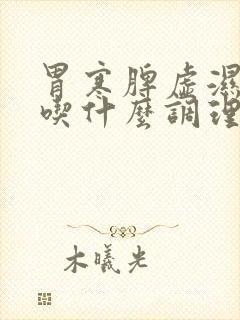 胃寒脾虛濕
喫什麼調理
木曦光